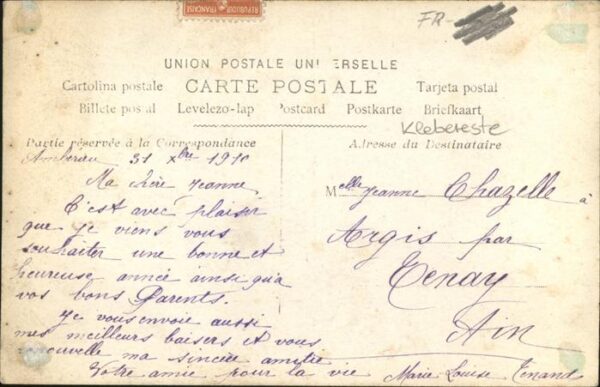 REPUBLIQUE FRANÇAISE
FR-
UNION POSTALE UNIVERSELLE
Cartolina postale CARTE POSTALE Tarjeta postal
Billete postal Levelezo-lap Postcard Postkarte Briefkaart
Klebereste
Partie réservée à la Correspondance
Adresse du Destinataire
Ambérieu 31 Xbre 1910
Ma chère Jeanne
C'est avec plaisir
que je viens vous
souhaiter une bonne et
heureuse année ainsi qu'a
vos bons Parents.
Je vous envoie aussi
mes meilleurs baisers et vous
renouvelle ma sincère amitié
Votre amie pour la vie Marie Louise Tenand
Melle Jeanne Chazelle à
Argis par
Tenay
Ain